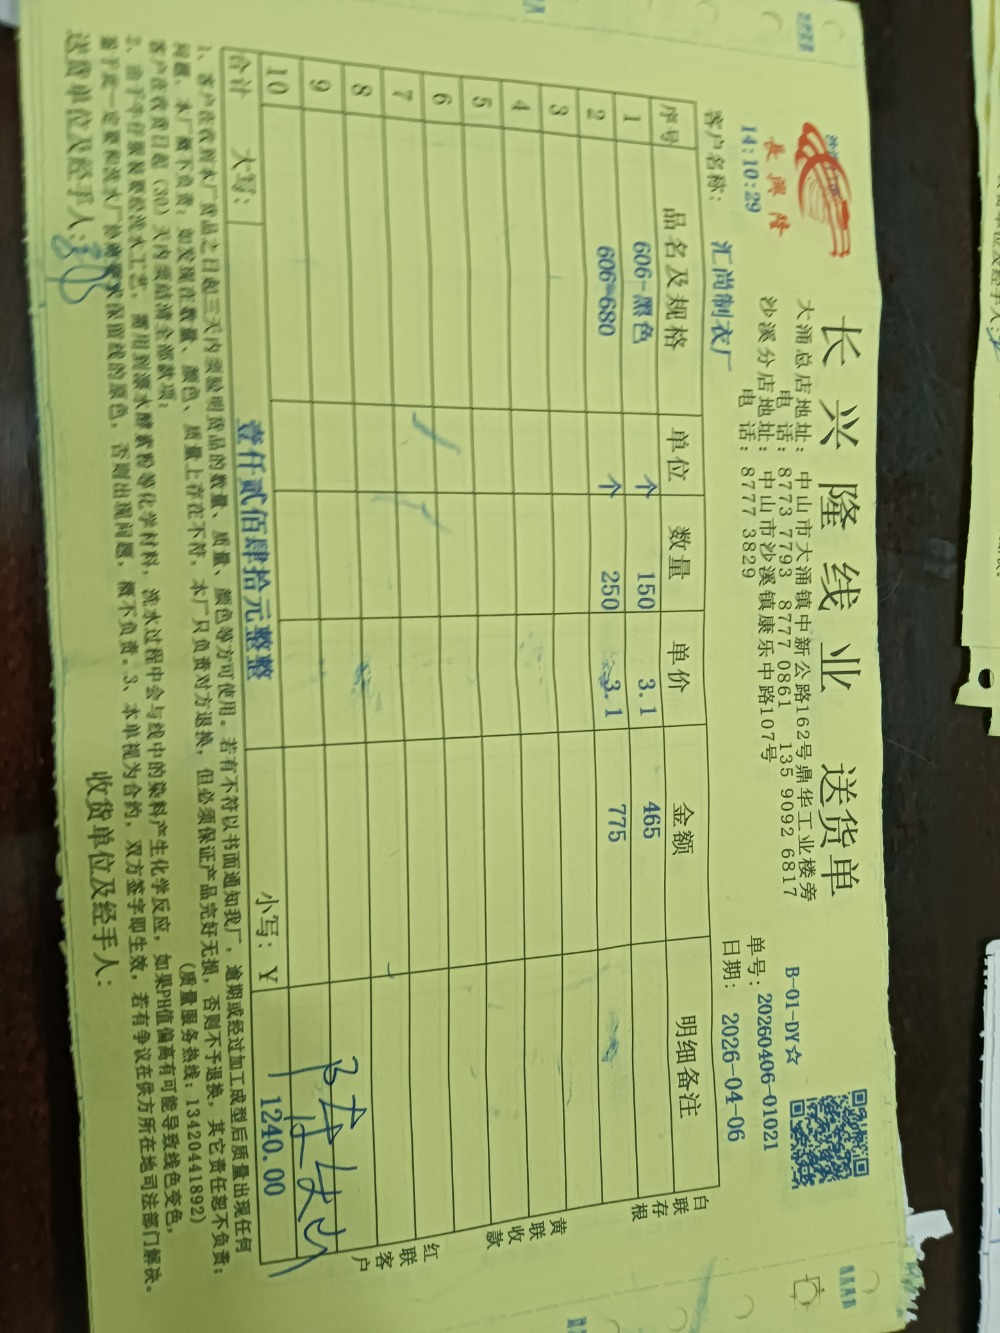 長興隆
长兴隆线业 送货单
大涌总店地址：中山市大涌镇中新公路162号鼎华工业楼旁
电 话：8773 7793 8777 0861 135 9092 6817
沙溪分店地址：中山市沙溪镇康乐中路107号
电 话：8777 3829
B-01-DY☆
单号：20260406-01021
日期：2026-04-06
14:10:29
客户名称：汇尚制衣厂
序号 品名及规格 单位 数量 单价 金额 明细备注
1 606-黑色 个 150 3.1 465
2 606-680 个 250 3.1 775
3
4
5
6
7
8
9
10
合计 大写：壹仟贰佰肆拾元整整 小写：￥ 1240.00
白联存根
黄联收款
红联客户
1、客户在收到本厂货品之日起三天内须验明货品的数量、质量、颜色等方可使用。若有不符以书面通知我厂，逾期或经过加工成型后质量出现任何
问题，本厂概不负责；如发现在数量、颜色、质量上存在不符，本厂只负责对方退换，但必须保证产品完好无损，否则不予退换，其它责任恕不负责；
客户在收货日起（30）天内须结清全部款项； （质量服务热线：13420441892）
2、由于牛仔服装要经洗水工艺，需用到漂水酵素粉等化学材料，洗水过程中会与线中的染料产生化学反应，如果PH值偏高有可能导致线色变色，
鉴于此一定要和洗水厂协调要求保留线的原色，否则出现问题，概不负责。3、本单视为合约，双方签字即生效，若有争议在供方所在地司法部门解决。
送货单位及经手人：
收货单位及经手人：